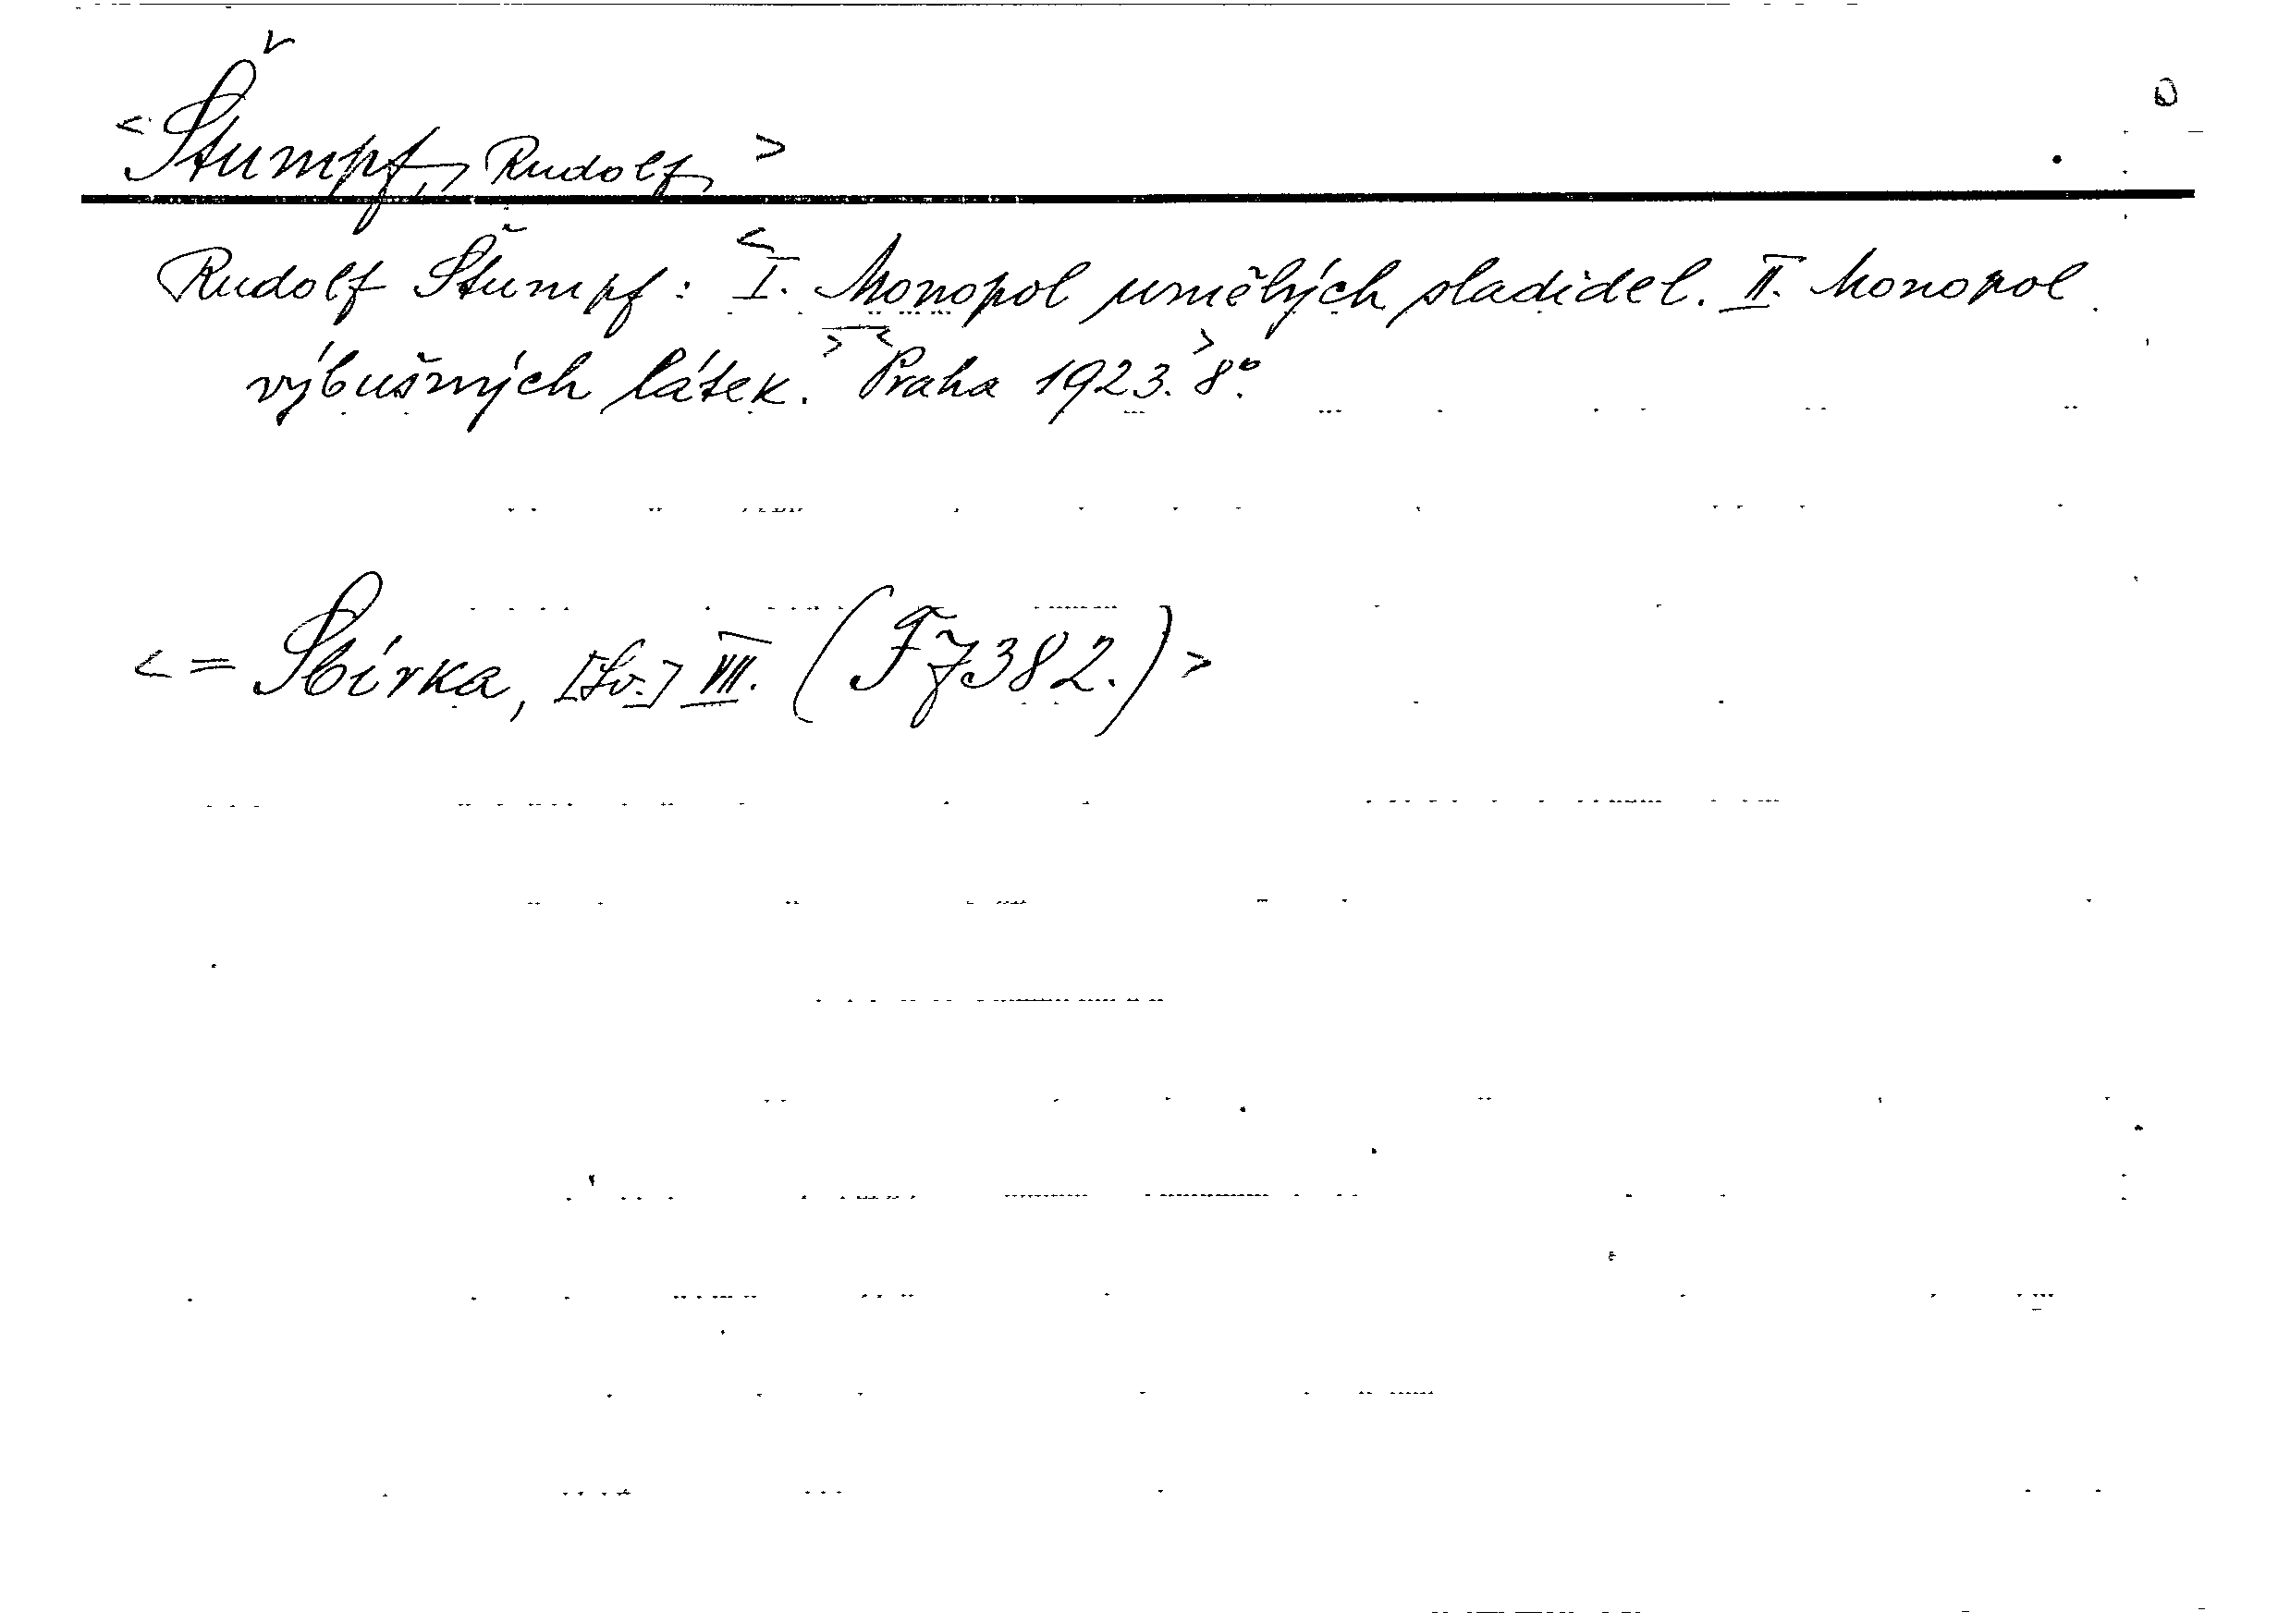 <Štumpf, Rudolf,>
Rudolf Štumpf: <I. Monopol umělých sladidel. II. Monopol
výbušných látek.> <Praha 1923.> 8°.
<= Sbírka, [Sv.] VII. (F 7382.)>